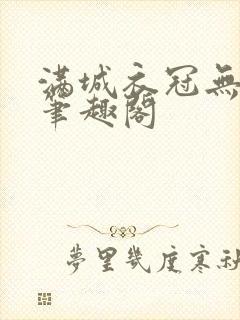 滿城衣冠無
筆趣閣
夢里幾度寒秋